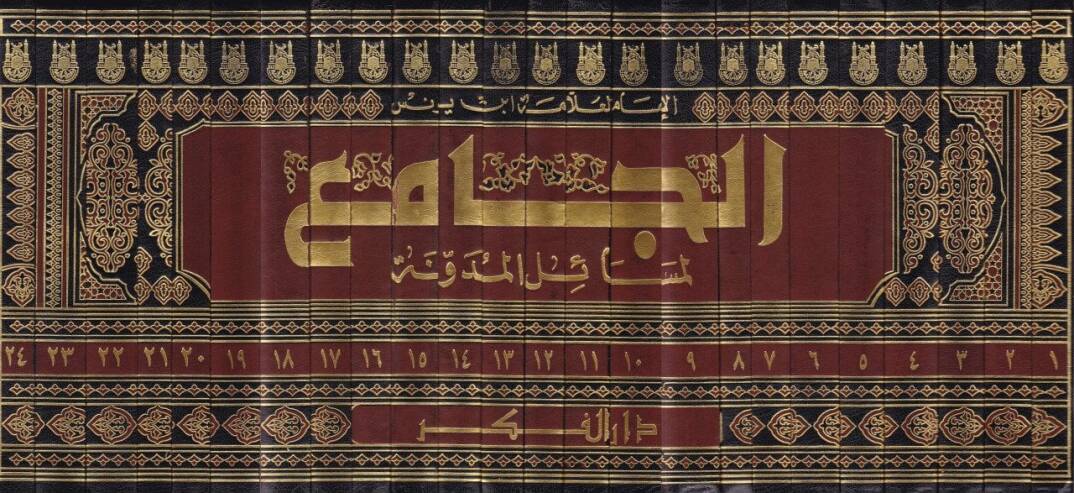 الإمام العلامة ابن يونس
الجامع
لمسَائِل المُدَوّنَة
١ ٢ ٣ ٤ ٥ ٦ ٧ ٨ ٩ ١٠ ١١ ١٢ ١٣ ١٤ ١٥ ١٦ ١٧ ١٨ ١٩ ٢٠ ٢١ ٢٢ ٢٣ ٢٤
دار الفكر